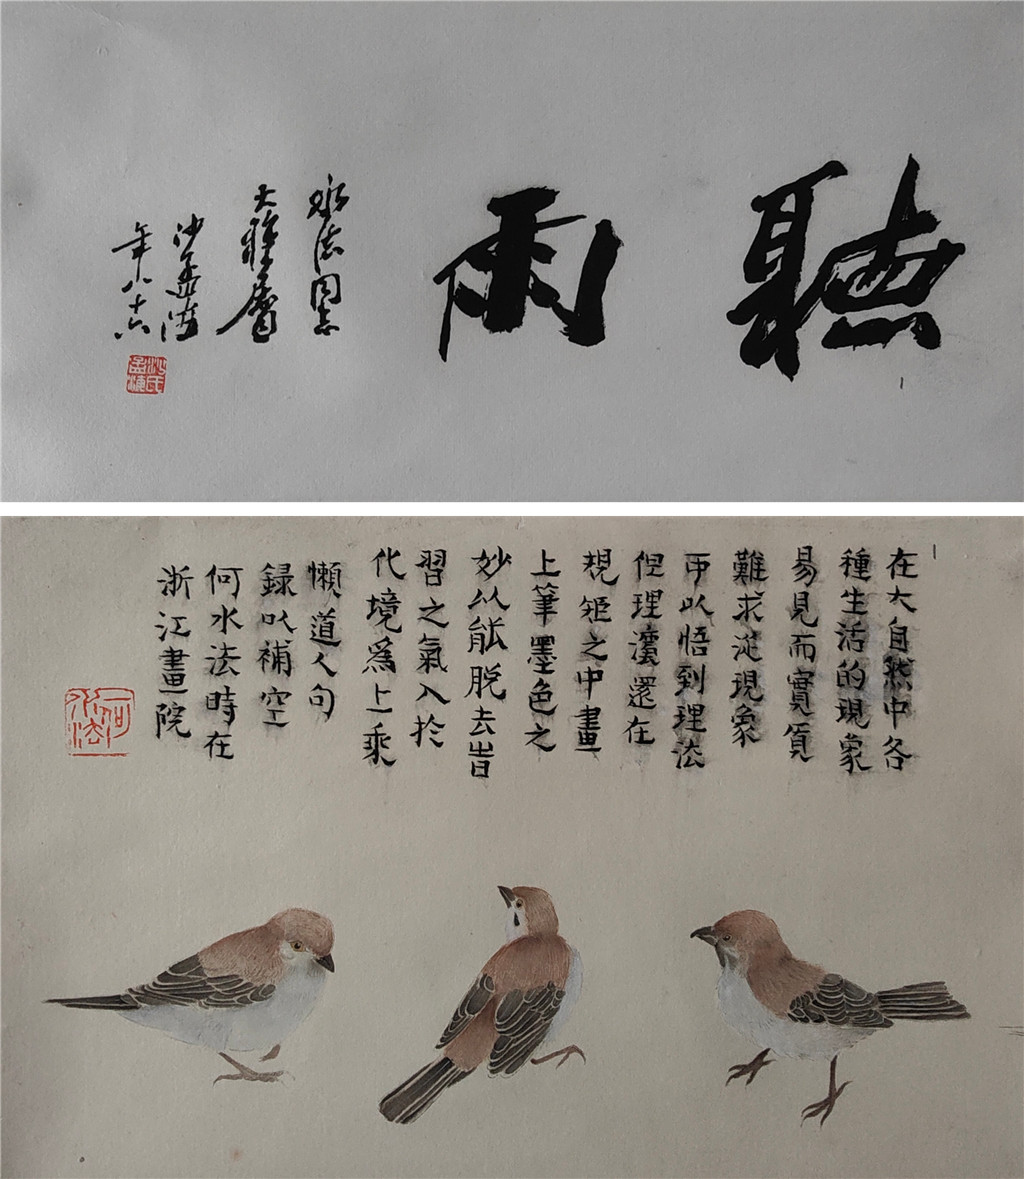 聽雨
水法同志
大雅属
沙孟海
年八十六
沙氏孟海
在大自然中各
種生活的現象
易見而實質
難求從現象
中以悟到理法
但理濆還在
規矩之中畫
上筆墨色之
妙以能脱去昔
習之氣入於
化境爲上乘
懶道人句
録以補空
何水法時在
浙江畫院
何水法